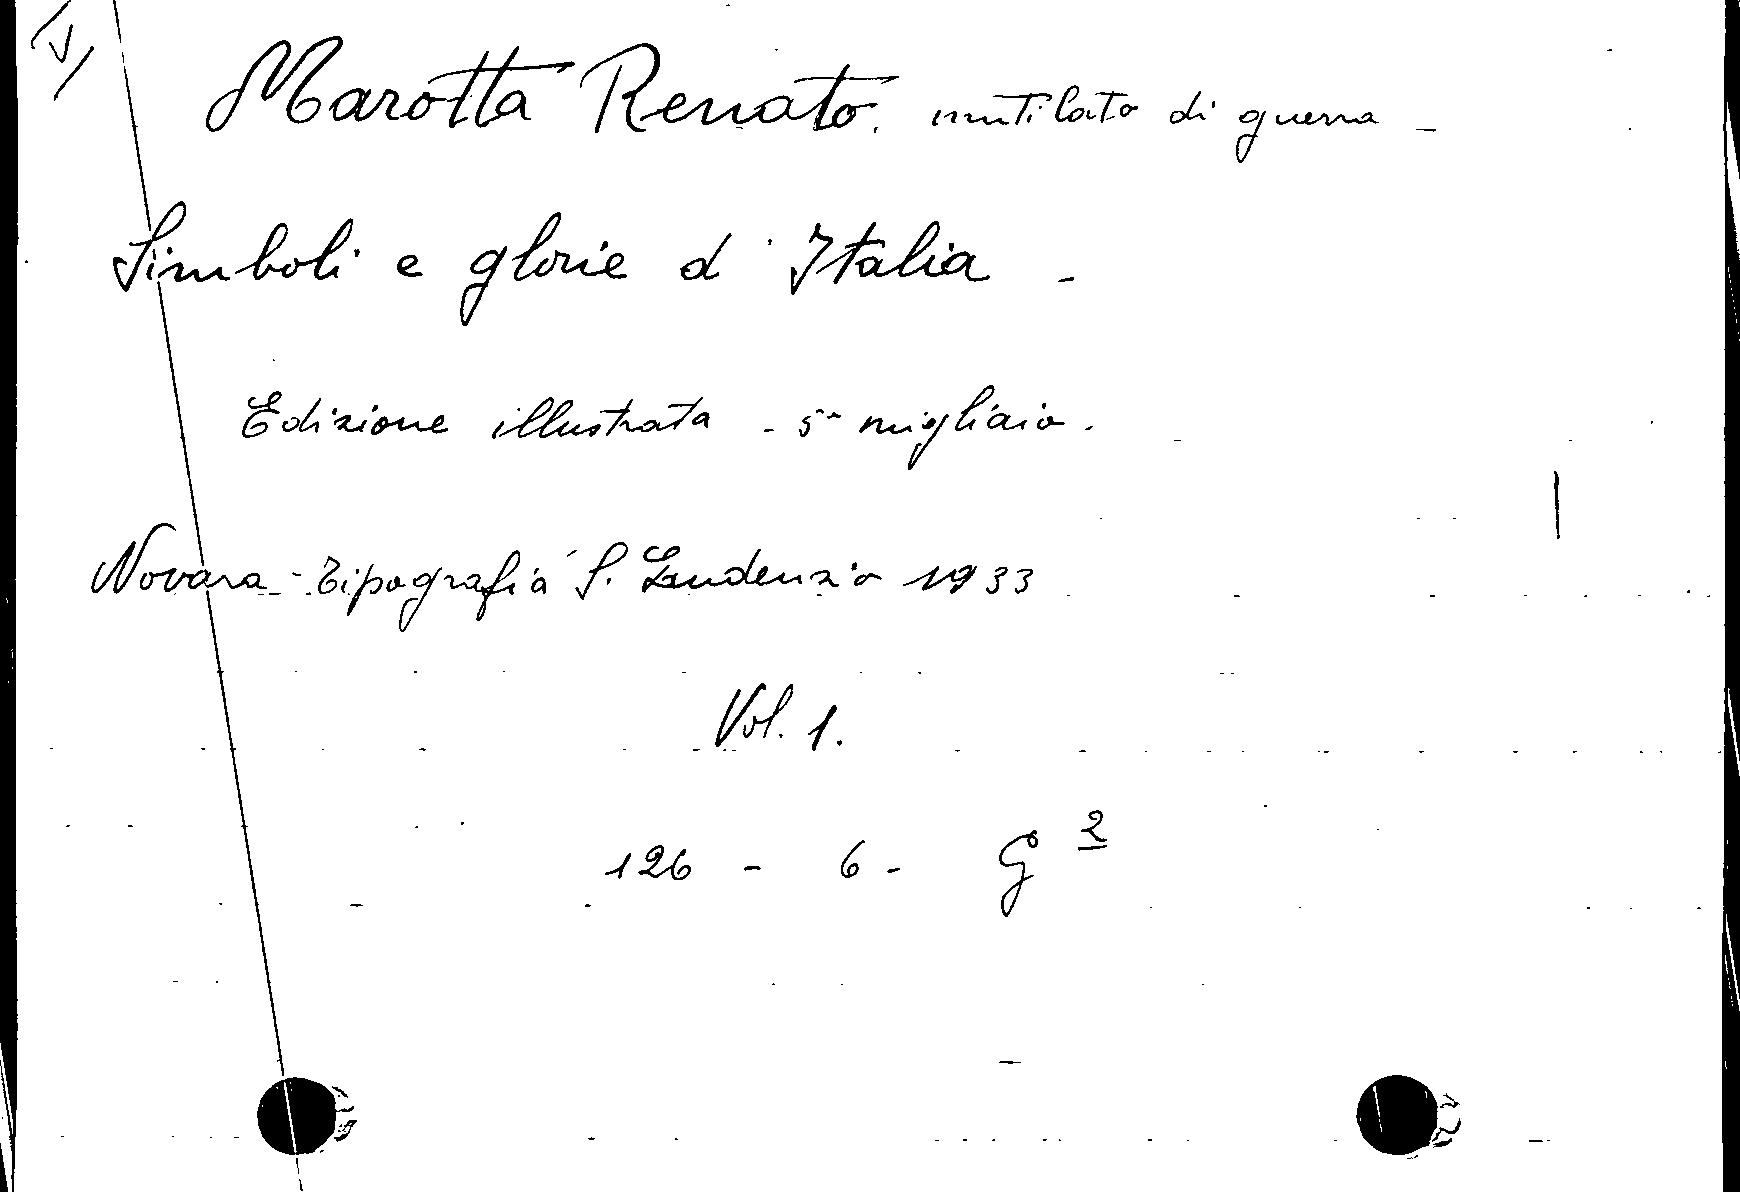 Marotta Renato. mutilato di guerra -
Simboli e glorie d'Italia -
Edizione illustrata - 5° migliaio.
Novara - Tipografia S. Gaudenzio 1933
Vol. 1.
126 - 6 - G 2